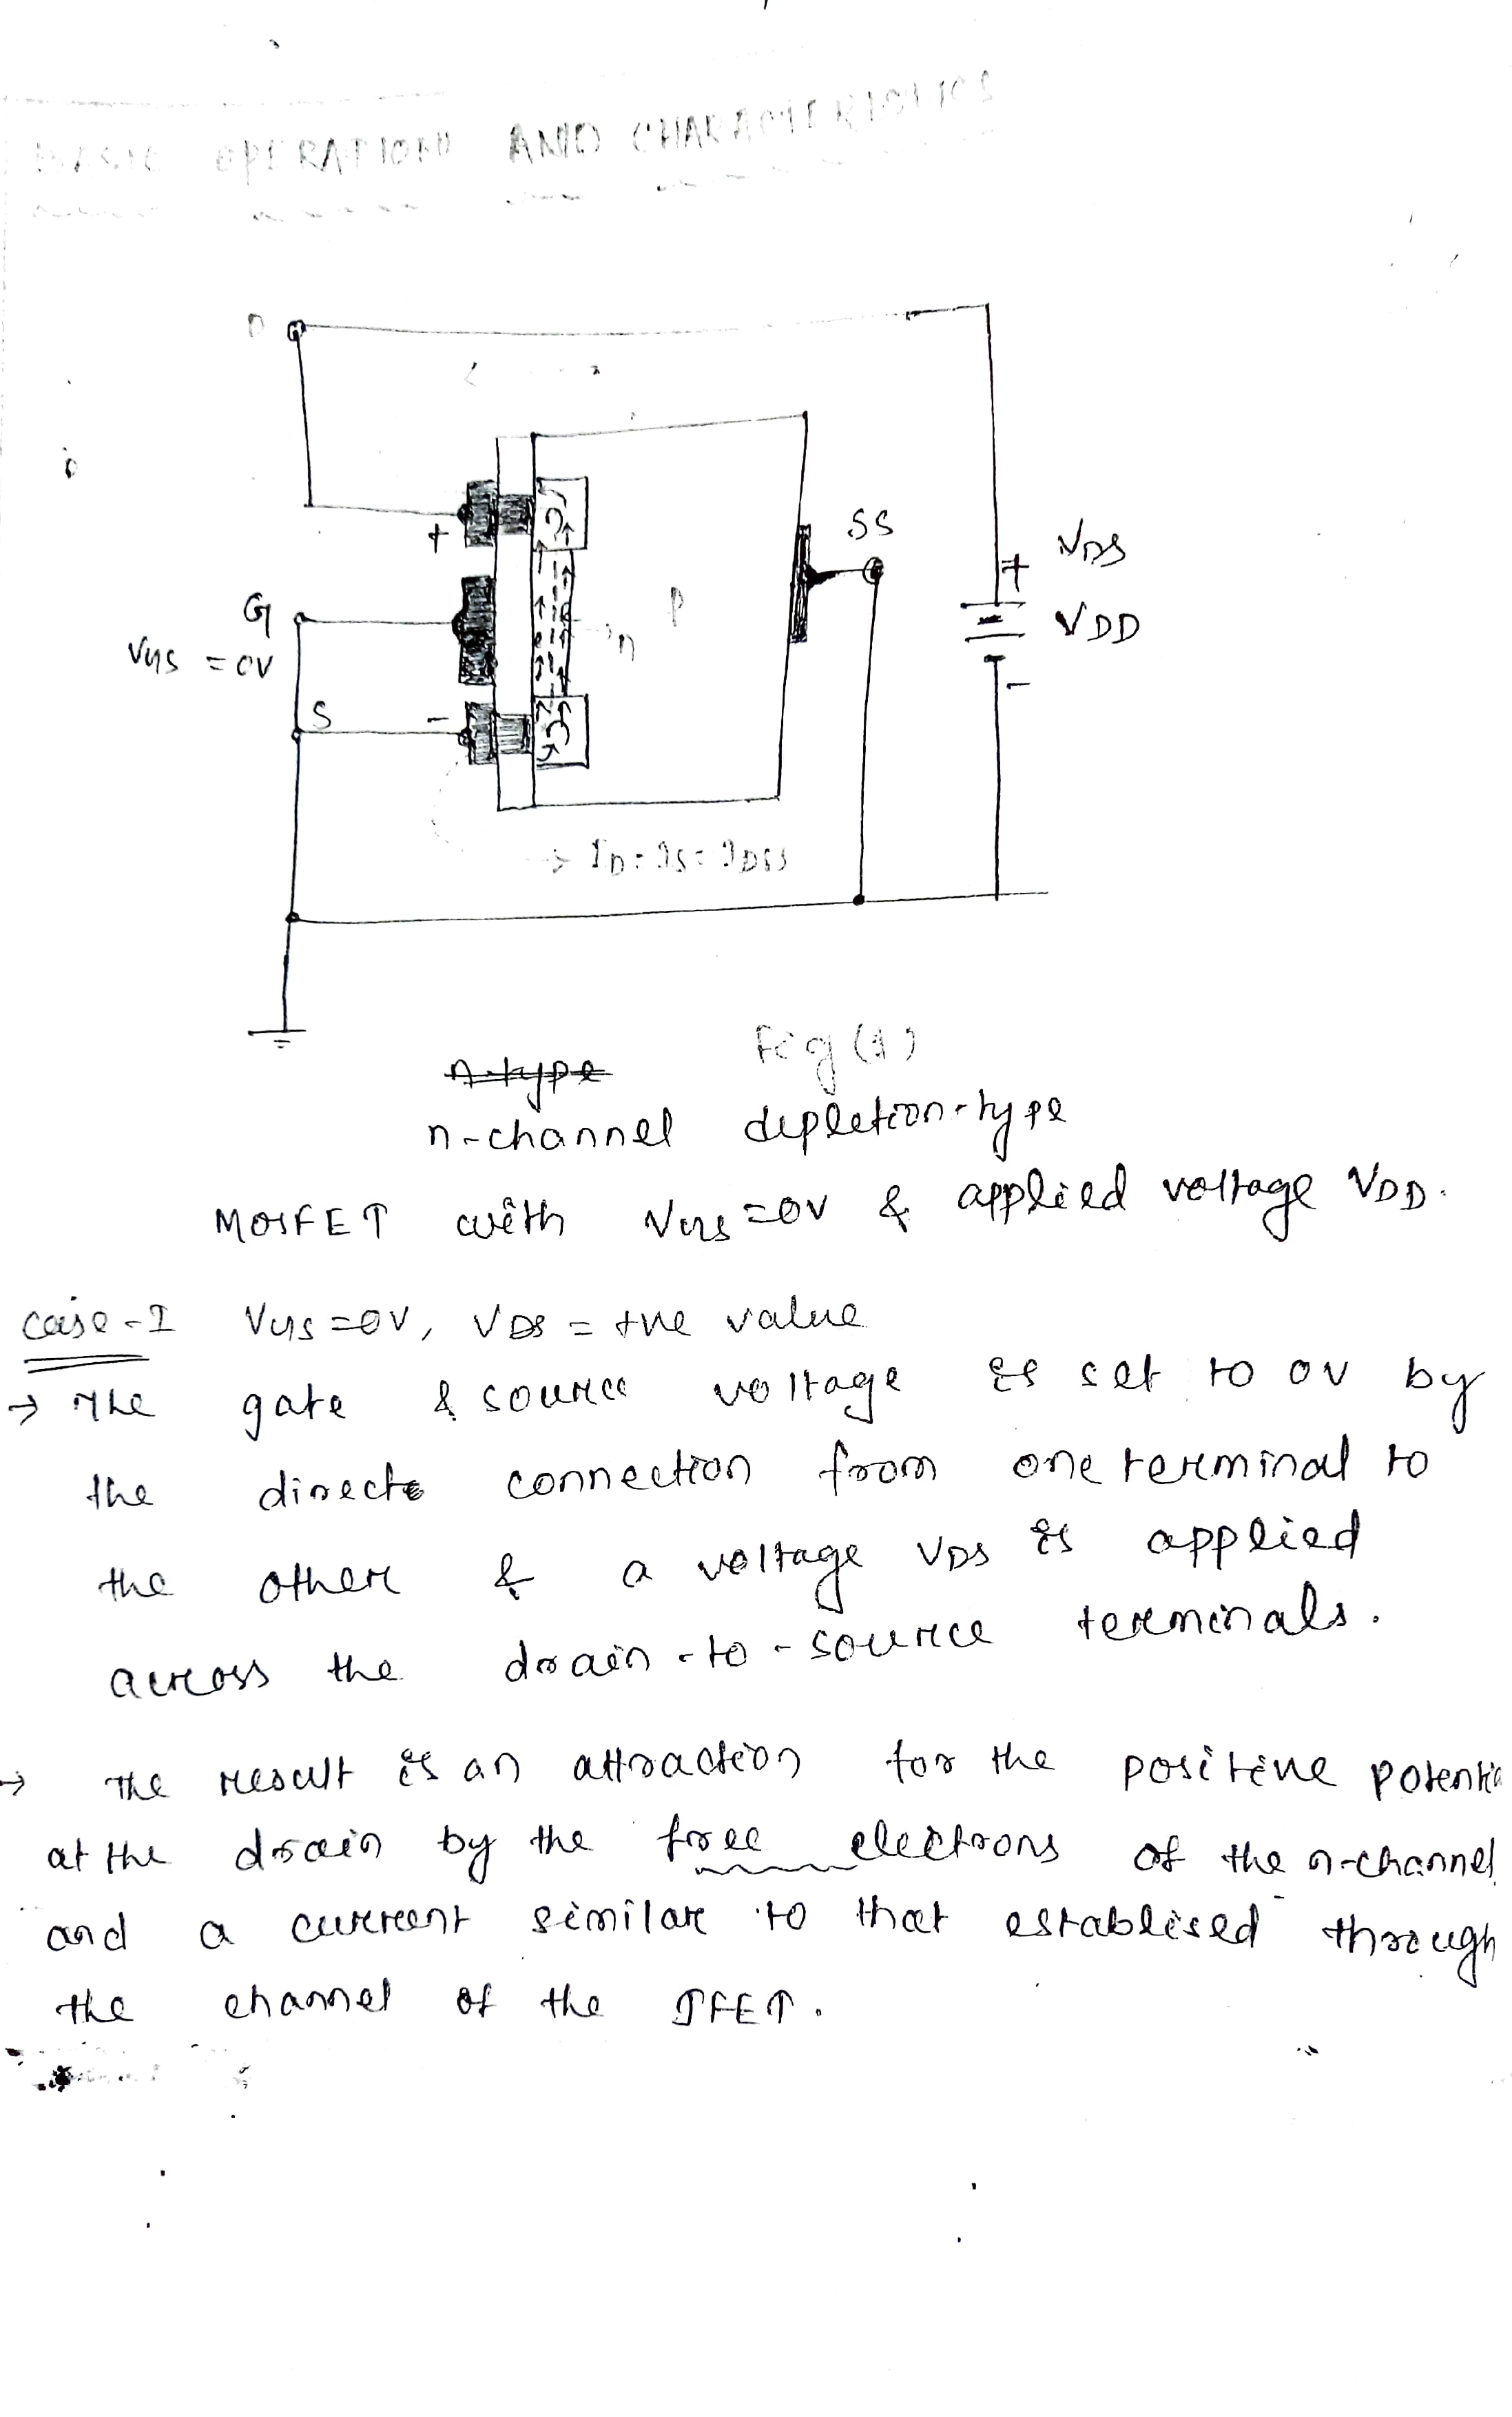 BASIC OPERATION AND CHARACTERISTICS
D
+
SS
+ VDS
VDD
-
G
VGS = 0V
n
P
S
-
→ ID = IS = IDSS
Fig (1)
n-type
n-channel depletion-type
MOSFET with VGS = 0V & applied voltage VDD.
Case-I VGS = 0V, VDS = +ve value
→ The gate & source voltage is set to 0V by
the direct connection from one terminal to
the other & a voltage VDS is applied
across the drain-to-source terminals.
→ The result is an attraction for the positive potentia
at the drain by the free electrons of the n-channel
and a current similar to that establised through
the channel of the JFET.